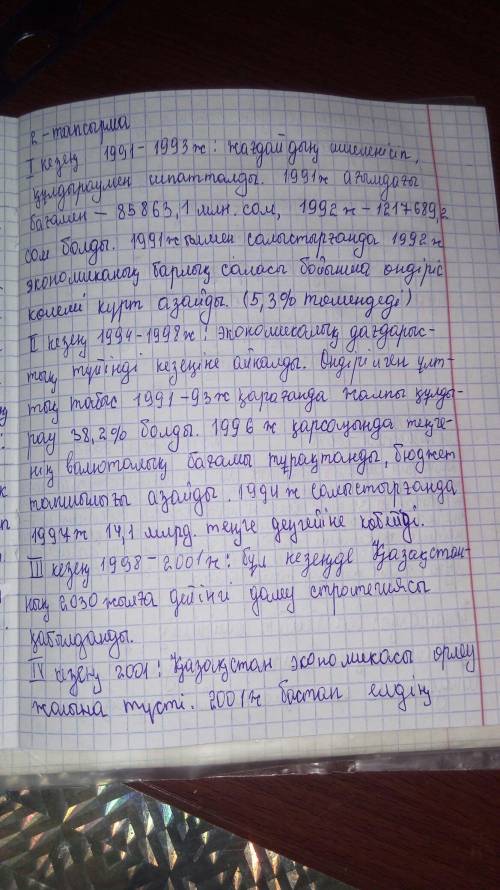 2-тапсырма
I кезең 1991-1993ж: жағдайдың шиеленісіп,
құлдыраумен сипатталды. 1991ж ағымдағы
бағамен – 85863,1 млн. сом, 1992ж – 1217689,2
сом болды. 1991жылмен салыстырғанда 1992ж
экономиканың барлық саласы бойынша өндіріс
көлемі күрт азайды. (5,3% төмендеді)
II кезең 1994-1998ж: экономикалық дағдарыс-
тың түйінді кезеңіне айналды. Өндірілген ұлт-
тық табыс 1991-93ж қарағанда жалпы құлды-
рау 38,2% болды. 1996ж қарсаңында теңге-
нің валюталық бағамы тұрақтанды, бюджет
тапшылығы азайды. 1994ж салыстырғанда
1997ж 14,1 млрд. теңге деңгейіне көбейді.
III кезең 1998-2001ж: бұл кезеңде Қазақстан-
ның 2030 жылға дейінгі даму стратегиясы
қабылданды.
IV кезең 2001: Қазақстан экономикасы өрлеу
жолына түсті. 2001ж бастап елдің